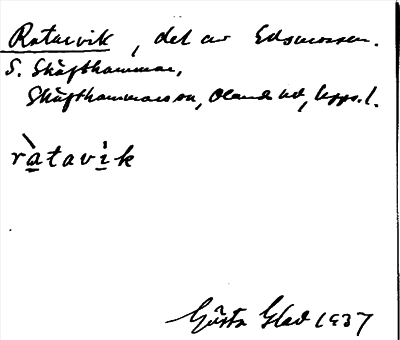 Ratavik, del av Edsmossen.
S. Skäfthammar,
Skäfthammars sn, Olands hd, Upps. l.
ràtavik
Gösta Glad 1937